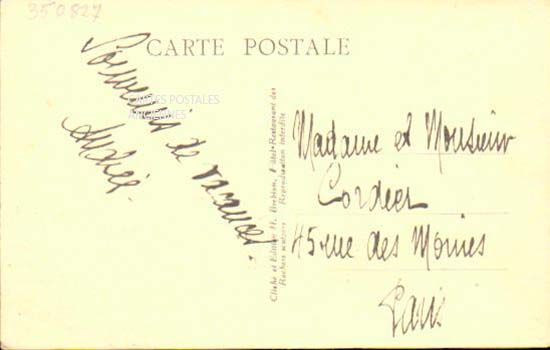 350827
CARTE POSTALE
Souvenirs de vacances.
Andrée.
CARTES POSTALES
ANCIENNES
Cliché et Edition H. Hôtel-Restaurant des
Rochers Reproduction interdite
Madame et Monsieur
Cordier
45 rue des Moines
Paris